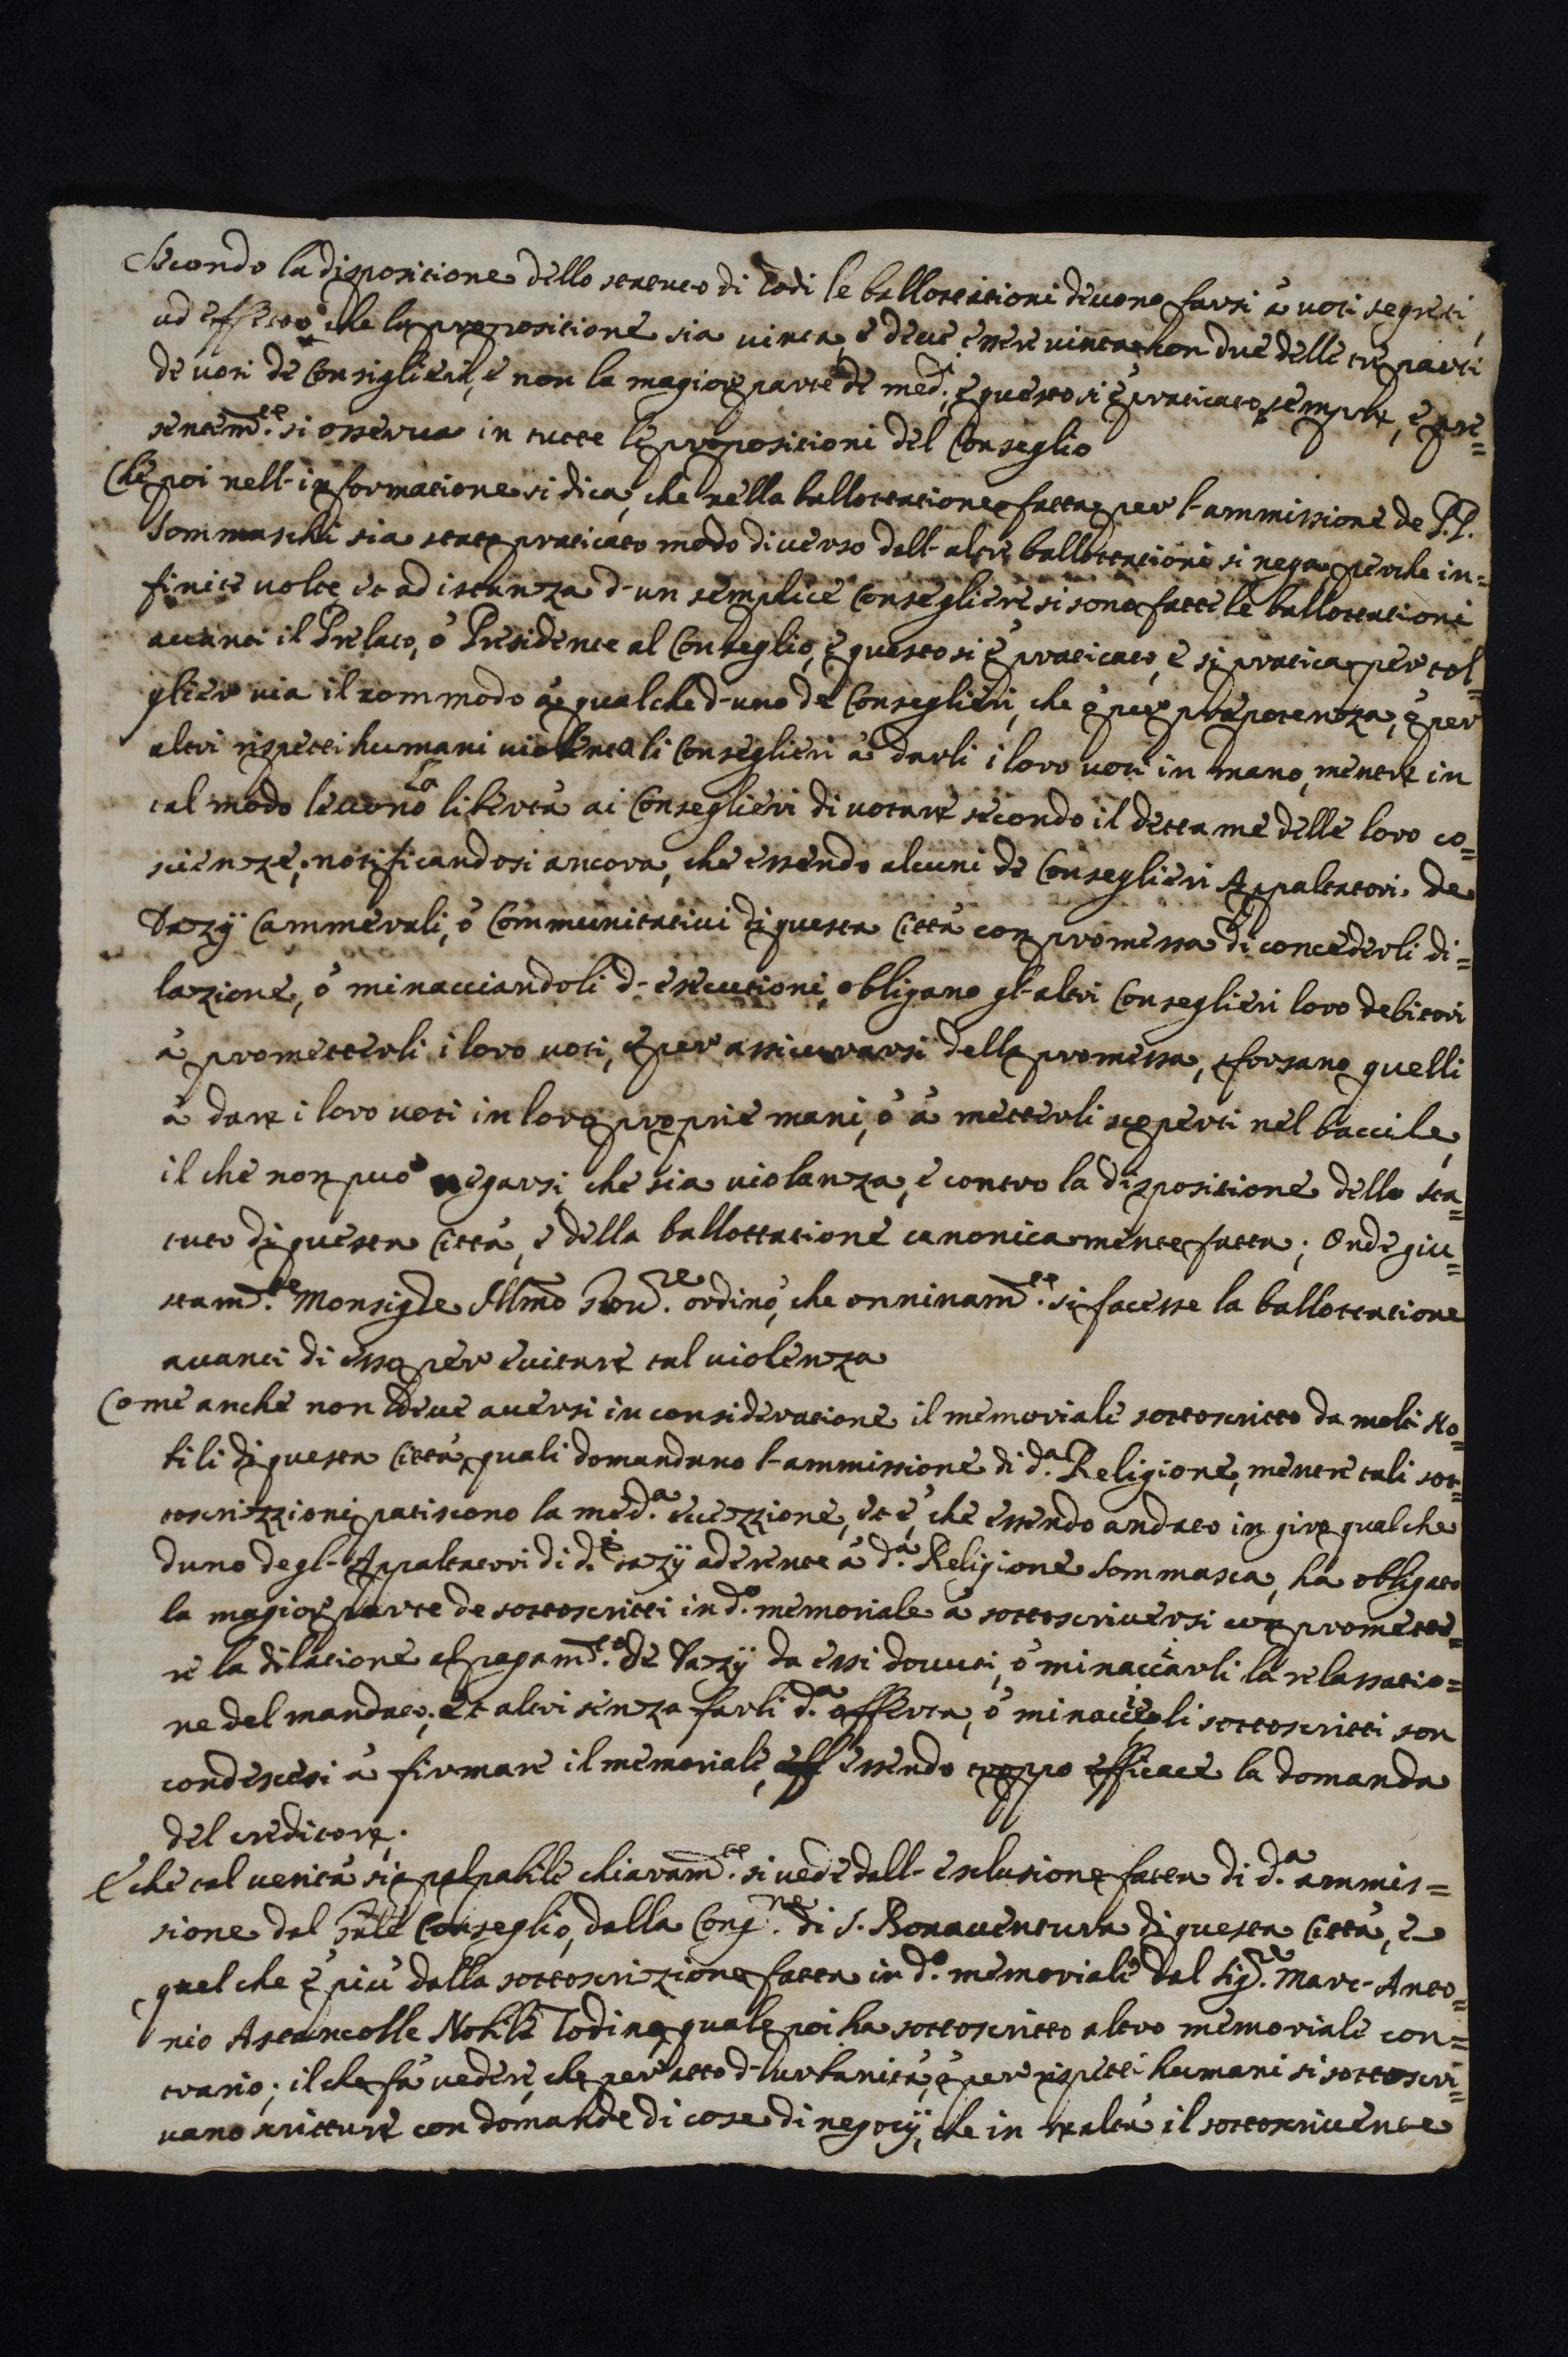 Secondo la dispositione dello statuto di Todi le ballottationi devono farsi à voti segreti,
ad effetto che la propositione sia vinta, e deve essere vinta con due delle tre parti
de voti de Consiglieri, e non la magior parte de med.i, e questo si è praticato sempre, e pre=
sentem.te si osserva in tutte le propositioni del Conseglio
Che poi nell'informatione si dica, che nella ballottatione fatta per l'ammissione de P.P.
Sommaschi sia stato praticato modo diverso dall'altre ballottationi si nega, perche in=
finite volte et ad istanza d'un semplice Consegliere si sono fatte le ballottationi
avanti il Prelato, ò Presidente al Conseglio, e questo si è praticato, e si pratica per tol=
glier via il commodo à qualched'uno de Conseglieri, che ò per prepotenza, ò per
altri rispetti humani violenta li Conseglieri à darli i loro voti in mano, mentre in
tal modo levono la libertà ai Conseglieri di votare secondo il dettame delle loro co=
scienze, notificandosi ancora, che essendo alcuni de Conseglieri Appaltatori de
Dazij Cammerali, ò Communitativi di questa Città con promessa di concederli di=
lazione, ò minacciandoli d'esecutioni, obligano gl'altri Conseglieri loro debitori
à prometterli i loro voti, e per assicurarsi della promessa, sforzano quelli
à dare i loro voti in loro proprie mani, ò à metterli scoperti nel baccile,
il che non può negarsi, che sia violanza, e contro la dispositione dello sta=
tuto di questa Città, e della ballottatione canonicamente fatta; Onde giu=
stam.te Monsig.re Ill.mo Gov.re ordinò, che onninam.te si facesse la ballottatione
avanti di esso per evitare tal violenza
Come anche non deve aversi in consideratione il memoriale sottoscritto da molti No=
bili di questa Città, quali domandano l'ammissione di d.a Religione, mentre tali sot=
toscrizzioni patiscono la med.a eccezzione, et è, che essendo andato in giro qualche
duno degl'Appaltatori di d.i Dazij aderente à d.a Religione Sommasca, ha obligato
la magior parte de sottoscritti in d.o memoriale à sottoscriversi con promette=
re la dilatione al pagam.to de Dazij da essi dovuti, ò minacciarli la relassatio=
ne del mandato, et altri senza farli d.a offerta, ò minaccie li sottoscritti son
condescesi à firmare il memoriale, essendo troppo efficace la domanda
del creditore.
E che tal verità sia palpabile chiaram.te si vede dall'esclusione fatta di d.a ammis=
sione dal g̃nle Conseglio, dalla Cong.ne di S. Bonaventura di questa Città, e
quel che è più dalla sottoscrizzione fatta in d.o memoriale dal Sig.re Marc'Anto=
nio Astancolle Nobile Todino, quale poi ha sottoscritto altro memoriale con=
trario; il che fà vedere, che per atto d'urbanità, ò per rispetti humani si sottoscri=
vano scritture con domande di cose di negocij, che in realtà il sottoscrivente